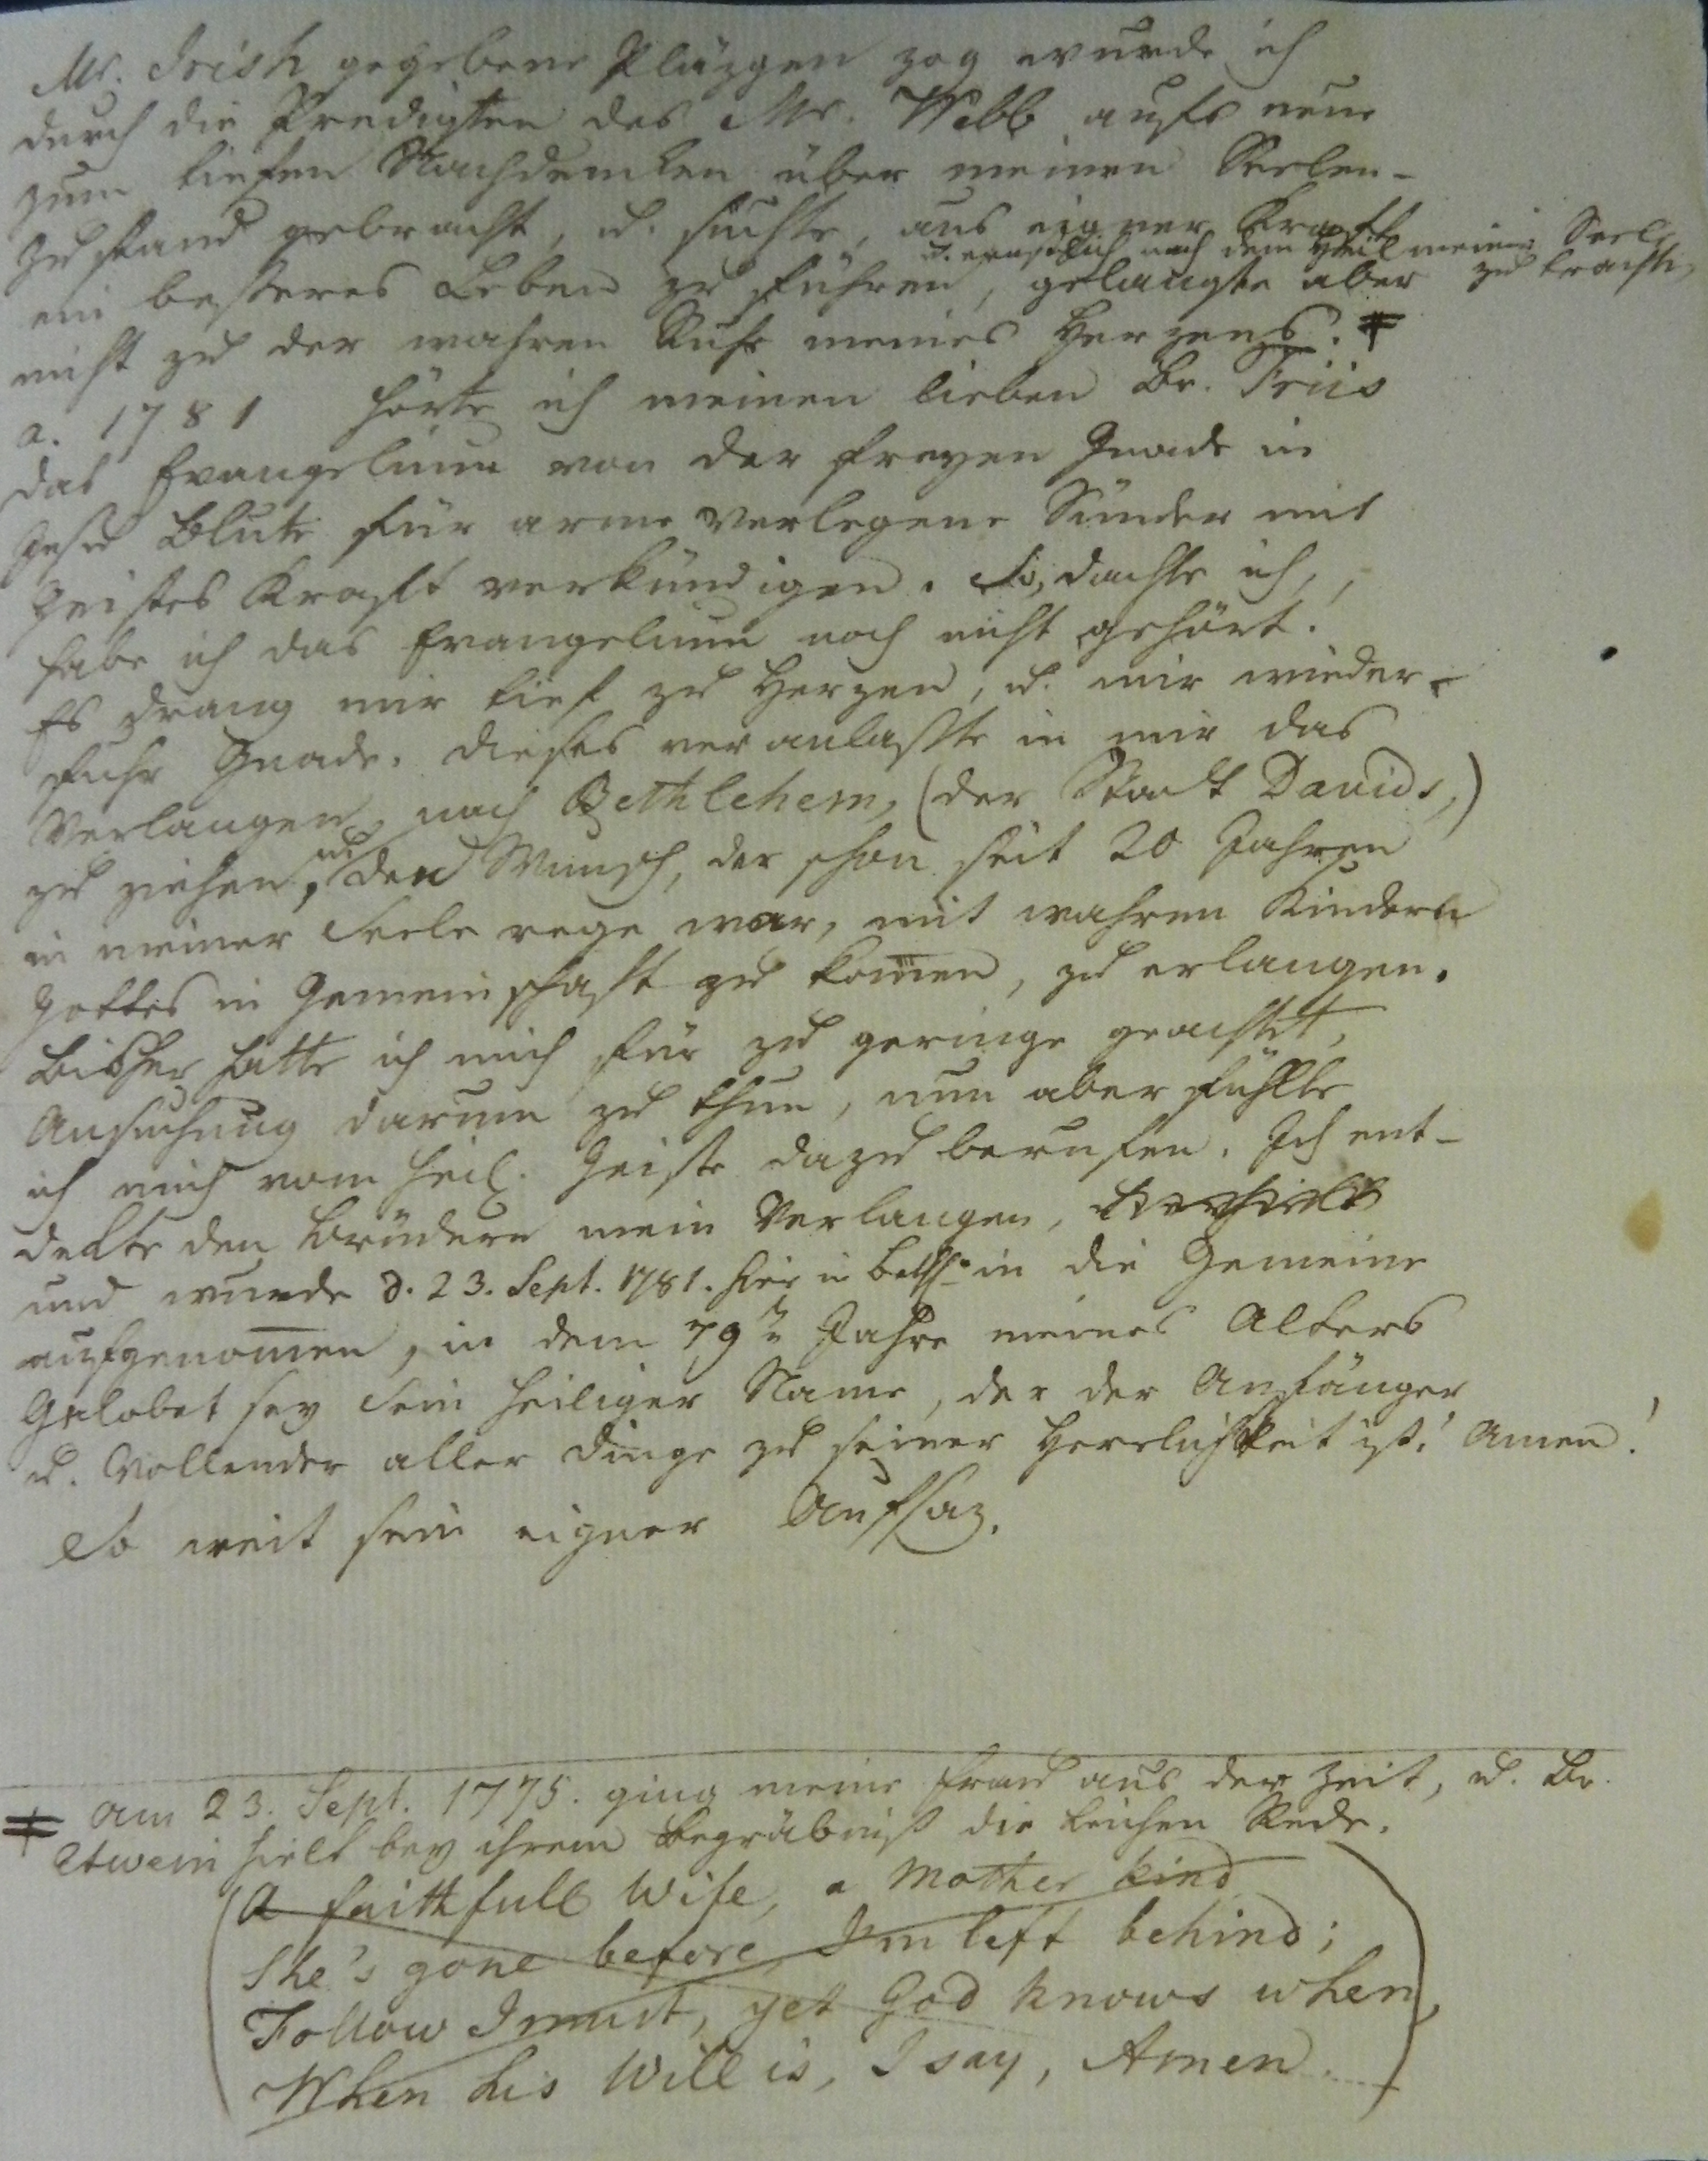 Mr. Irish gegebene Pläzgen zog wurde ich
durch die Predigten des Mr. Webb aufs neue
zum tiefen Nachdencken über meinen Seelen-
zustand gebracht, u. suchte, aus eigner Kraft
u. ernstlich nach dem Heil meiner Seele
ein besseres Leben zu führen, gelangte aber zu trachten,
nicht zu der wahren Ruhe meines Herzens. ‡
a. 1781 hörte ich meinen lieben Br. Friis
das Evangelium von der freyen Gnade in
Jesu Blute für arme verlegene Sünder mit
Geistes Kraft verkündigen. So, dachte ich,
habe ich das Evangelium noch nicht gehört.
Es drang mir tief zu Herzen, u. mir wieder-
fuhr Gnade. Dieses veranlaßte in mir das
Verlangen nach Bethlehem, (der Stadt Davids,)
zu ziehen, und den Wunsch, der schon seit 20 Jahren
in meiner Seele rege war, mit wahren Kindern
Gottes in Gemeinschaft zu kom̄en, zu erlangen.
Bisher hatte ich mich für zu geringe geachtet,
Ansuchung darum zu thun, nun aber fühlte
ich mich vom heil. Geiste dazu berufen. Ich ent-
dekte den Brüdern mein Verlangen,
und wurde d. 23. Sept. 1781. hier in Bethl. in die Gemeine
aufgenom̄en, in dem 79n Jahre meines Alters
Gelobet sey Sein heiliger Name, der der Anfänger
u. Vollender aller Dinge zu seiner Herrlichkeit ist! Amen!
So weit sein eigner Aufsaz.
‡ Am 23. Sept. 1775. ging meine Frau aus der Zeit, u. Br.
Etwein hielt bey ihrem Begräbniß die Leichen Rede.
(A faithfull Wife, a Mother kind
She's gone before, I'm left behind;
Follow I must, yet God knows when,
When his Will is, I say, Amen.)